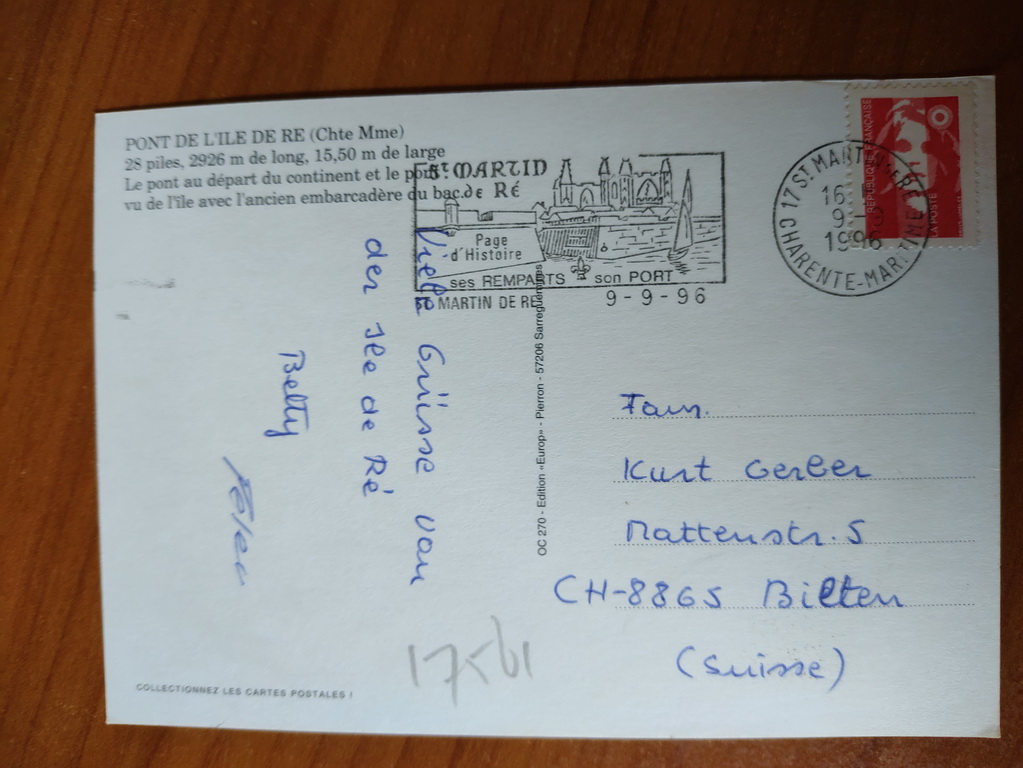 PONT DE L'ILE DE RE (Chte Mme)
28 piles, 2926 m de long, 15,50 m de large
Le pont au départ du continent et le pont
vu de l'île avec l'ancien embarcadère du bac.
St MARTIN
DE RÉ
Page
d'Histoire
ses REMPARTS son PORT
ST MARTIN DE RE 9-9-96
17 ST MART
16 H
9-9
1996
CHARENTE-MARITIME
REPUBLIQUE FRANÇAISE
LA POSTE
Viele Grüsse von
der Ile de Ré
Betty
OC 270 - Edition «Europ» - Pierron - 57206 Sarreguemines
Fam.
Kurt Gerber
Mattenstr. 5
CH-8865 Bilten
(Suisse)
COLLECTIONNEZ LES CARTES POSTALES !